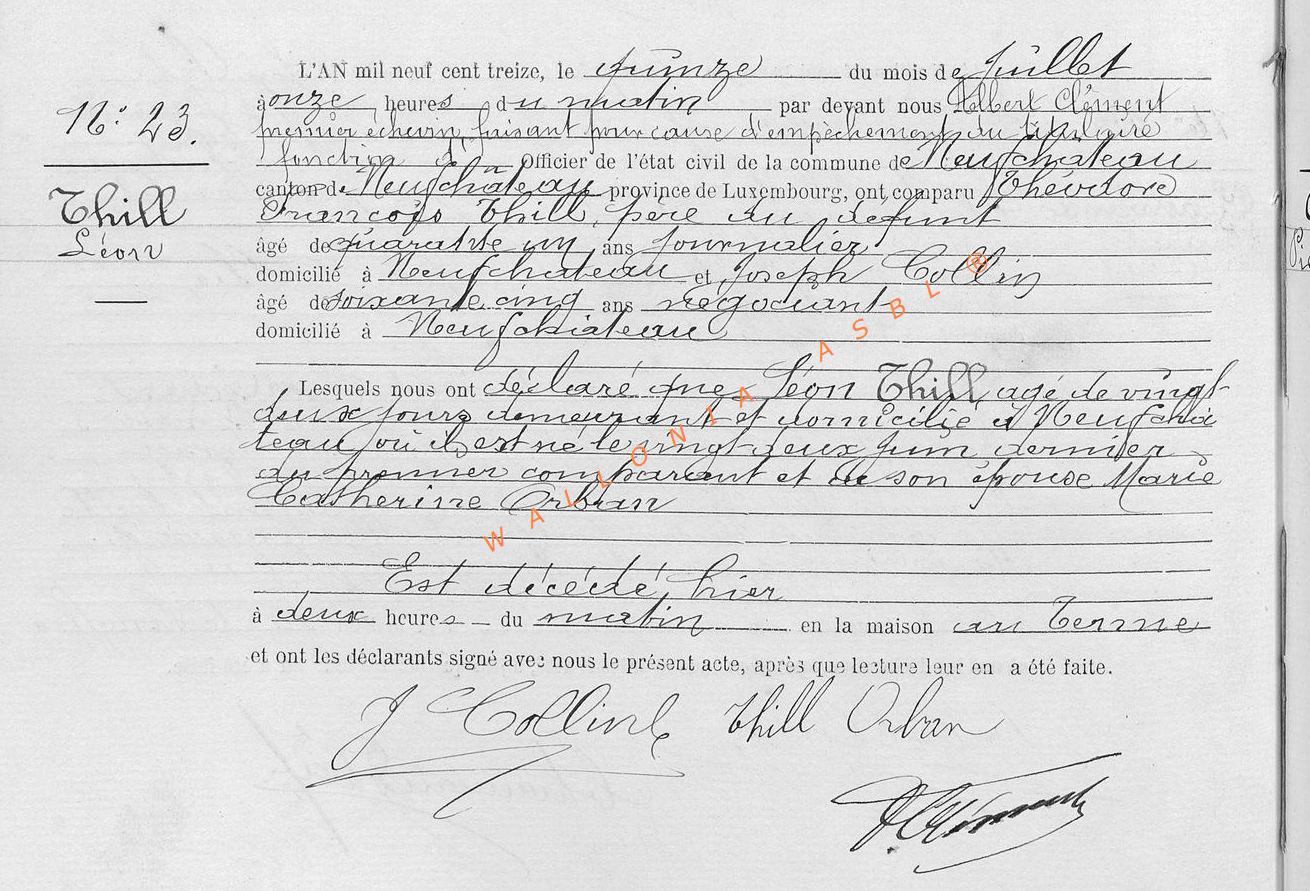 L'AN mil neuf cent treize, le quinze du mois de Juillet
à onze heures du matin par devant nous Albert Clément
premier échevin faisant pour cause d'empêchement du titulaire
fonction d' Officier de l'état civil de la commune de Neufchateau
canton de Neufchâteau province de Luxembourg, ont comparu Théodore
François Thill, père du defunt
âgé de quarante un ans journalier
domicilié à Neufchateau et Joseph Collin
âgé de soixante cinq ans négociant
domicilié à Neufchateau
Lesquels nous ont déclaré que Léon Thill agé de vingt
deux jours demeurant et domicilié à Neufchâ
teau où il est né le vingt-deux juin dernier
du premier comparant et de son épouse Marie
Catherine Orban
Est décédé hier
à deux heures du matin en la maison au Terme
et ont les déclarants signé avec nous le présent acte, après que lecture leur en a été faite.
J Collin Thill Orban
A Clément
N° 23.
Thill
Léon
WALLONIA ASBL ®